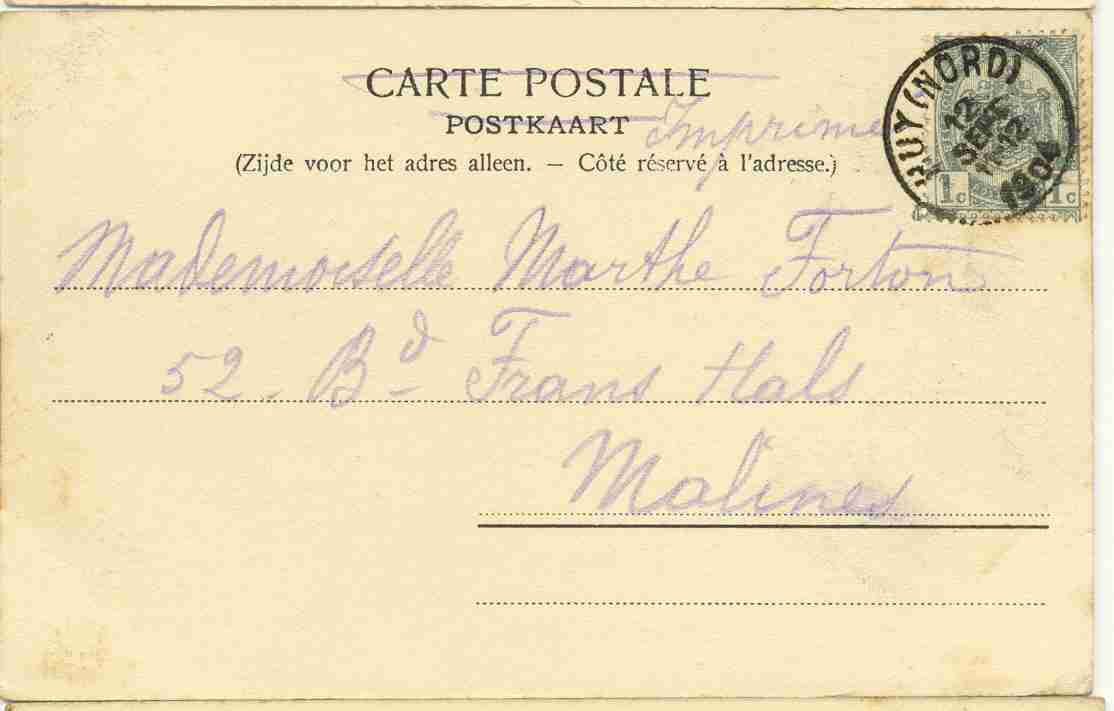 CARTE POSTALE
POSTKAART
Imprimé
(Zijde voor het adres alleen. — Côté réservé à l'adresse.)
HUY (NORD)
12
SEPT
1904
1c 1c
Mademoiselle Marthe Forton
52 - Bd Frans Hals
Malines